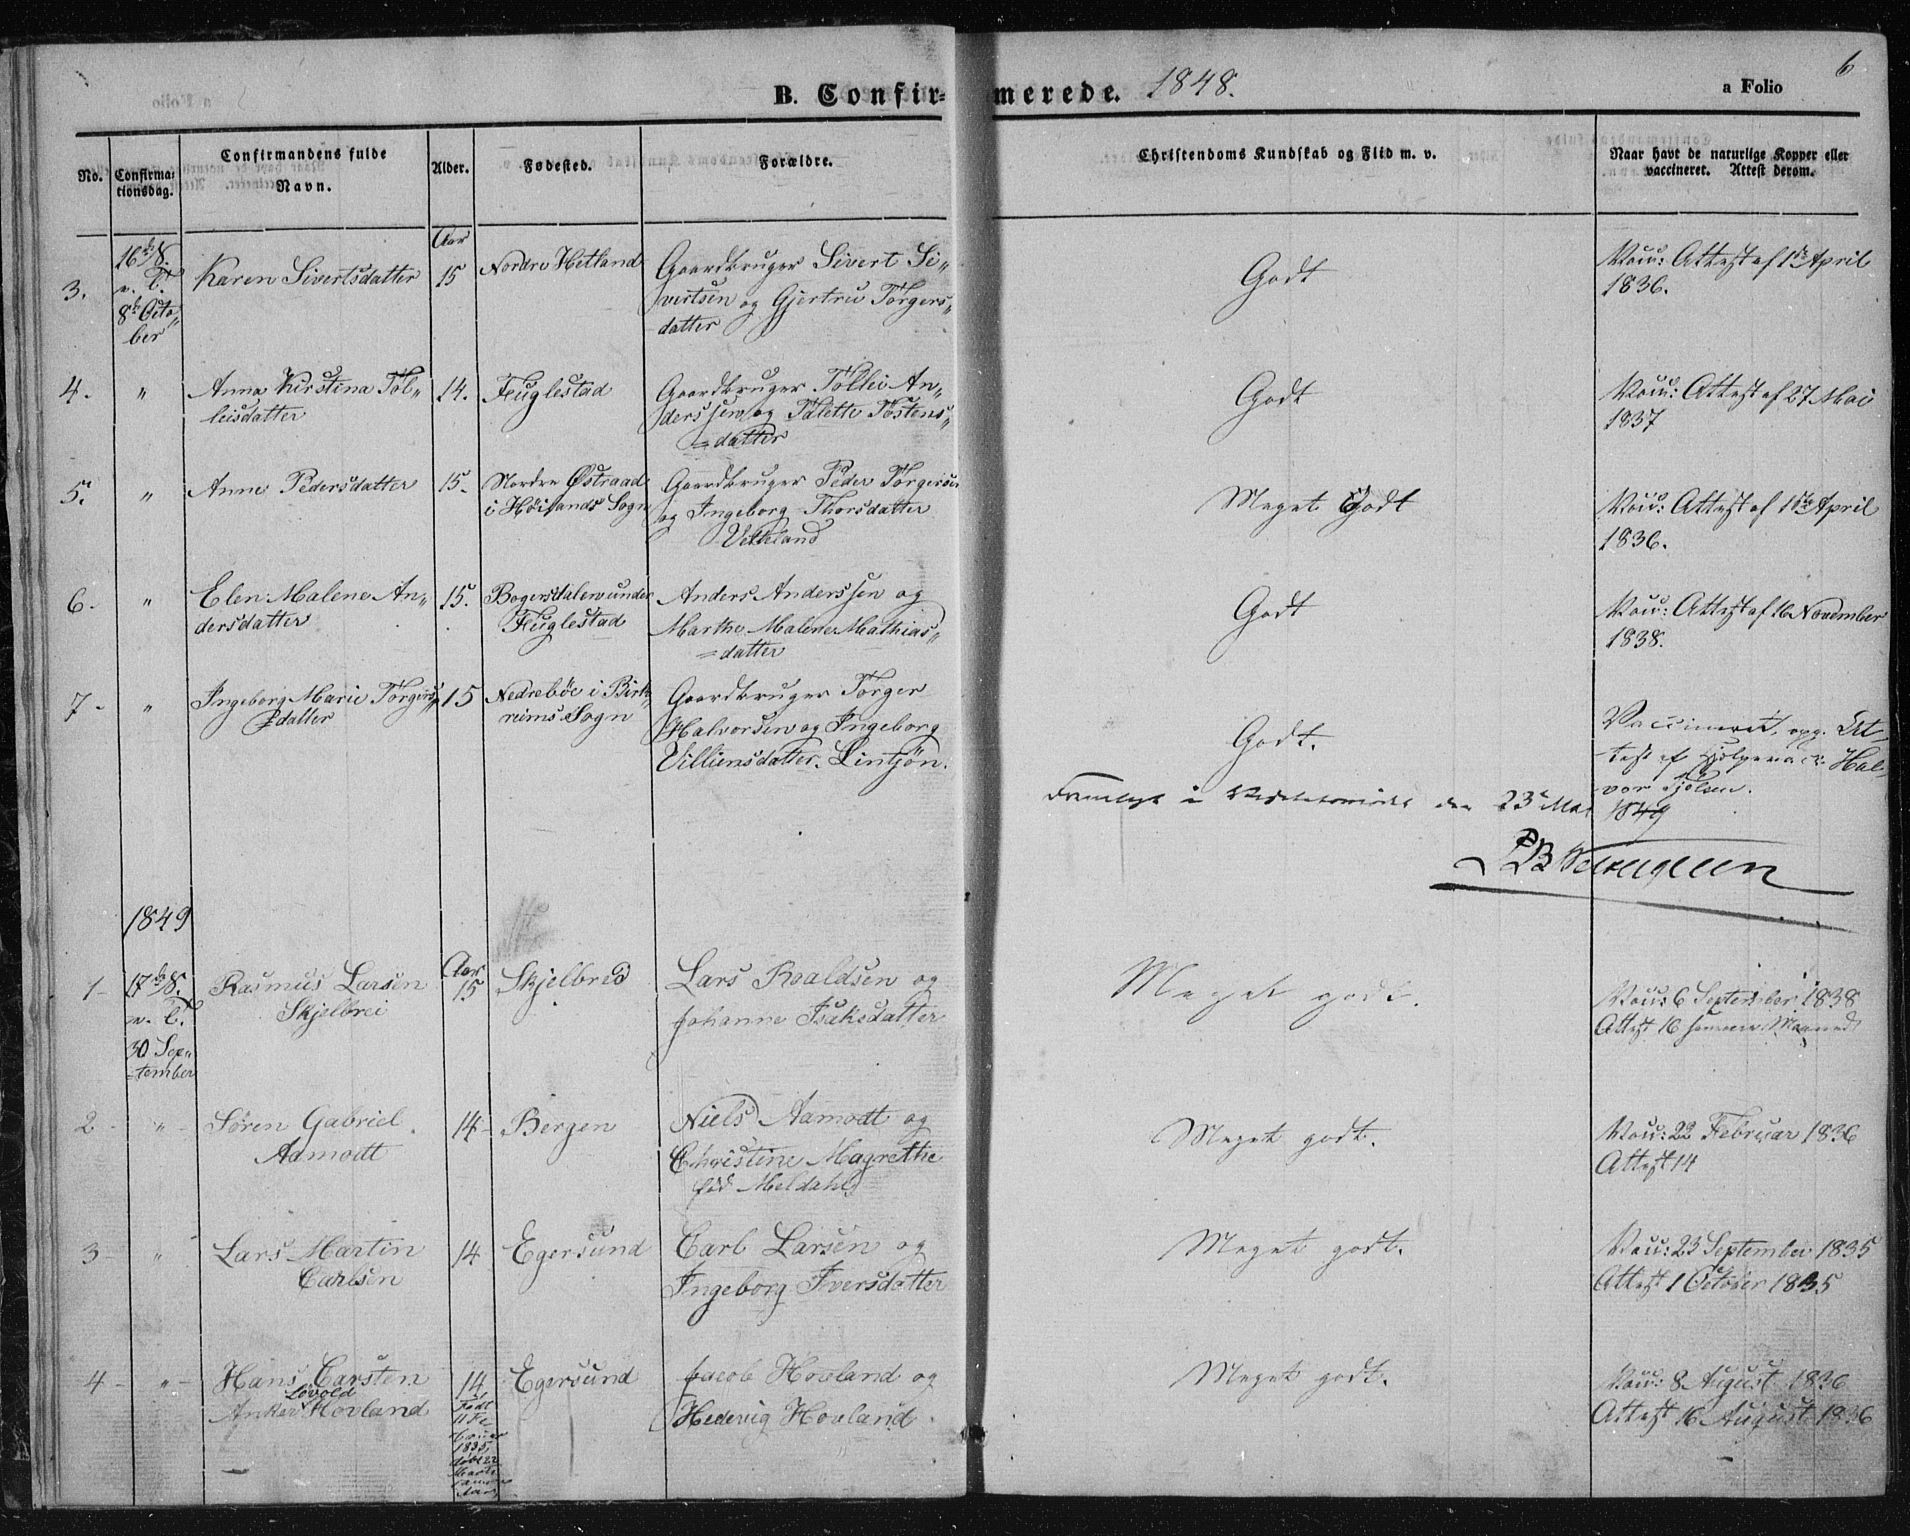 B. Confir=merede. 1848.
a Folio
6
No.
Confirma=
tionsdag.
Confirmandens fulde
Navn.
Alder.
Fødested.
Forældre.
Christendoms Kundskab og Flid m. v.
Naar havt de naturlige Kopper eller
vaccineret. Attest derom.
3.
8de Octo„
ber
Karen Sivertsdatter
Aar
15
Nordre Hetland
Gaardbruger Sivert Si„
vertsen og Gjertru Torgers„
datter
Godt
Vacc: Attest af 1ste April
1836.
4.
"
Anna Kirstina Tol„
leisdatter
14.
Fuglestad
Gaardbruger Tollei An„
derssen og Talette Tostens„
=datter
Godt
Vacc: Attest af 27 Mai
1837
5.
"
Anne Pedersdatter
15.
Nordre Østraad
i Høilands Sogn
Gaardbruger Peder Torgersen
og Ingeborg Thorsdatter
Vetteland
Meget Godt
Vacc: Attest af 1ste April
1836.
6.
"
Elen Malene An„
dersdatter
15.
Bogersdalen under
Fuglestad
Anders Anderssen og
Marthe Malene Mathias„
=datter
Godt
Vacc: Attest af 16 November
1838.
7
"
Ingeborg Marie Torgers„
datter
15
Nedrebøe i Birk„
reims Sogn
Gaardbruger Torger
Halvorsen og Ingeborg
Villiensdatter. Lintjøn.
Godt.
Vaccineret, opg. At„
test af Hjelpevacc: Hal„
vor
1849
den 23de Mai
1849
1
17
30 Sep„
=tember
Rasmus Larsen
Skjelbrei
Aar
15
Skjelbred
Lars Roaldsen og
Johanne Isaksdatter
Meget godt.
Vacc: 6 September 1838
Attest 16 samme Maaned
2
"
Søren Gabriel
Aamodt
14
Bergen
Niels Aamodt og
Christine Magrethe
fød Meldahl
Meget godt.
Vacc: 22 Februar 1836
Attest 14
3
"
Lars Martin
Carlsen
14
Egersund
Carl Larsen og
Ingeborg Iversdatter
Meget godt.
Vacc: 23 September 1835
Attest 1 October 1835
4
"
Hans Carsten
Løvold
Anker Hovland
14
Født
11 Fe
bruar
1835,
døbt 22
Marts
samme
Aar
Egersund
Jacob Hovland og
Hedevig Hovland
Meget godt.
Vacc: 8 August 1836
Attest 16 August 1836